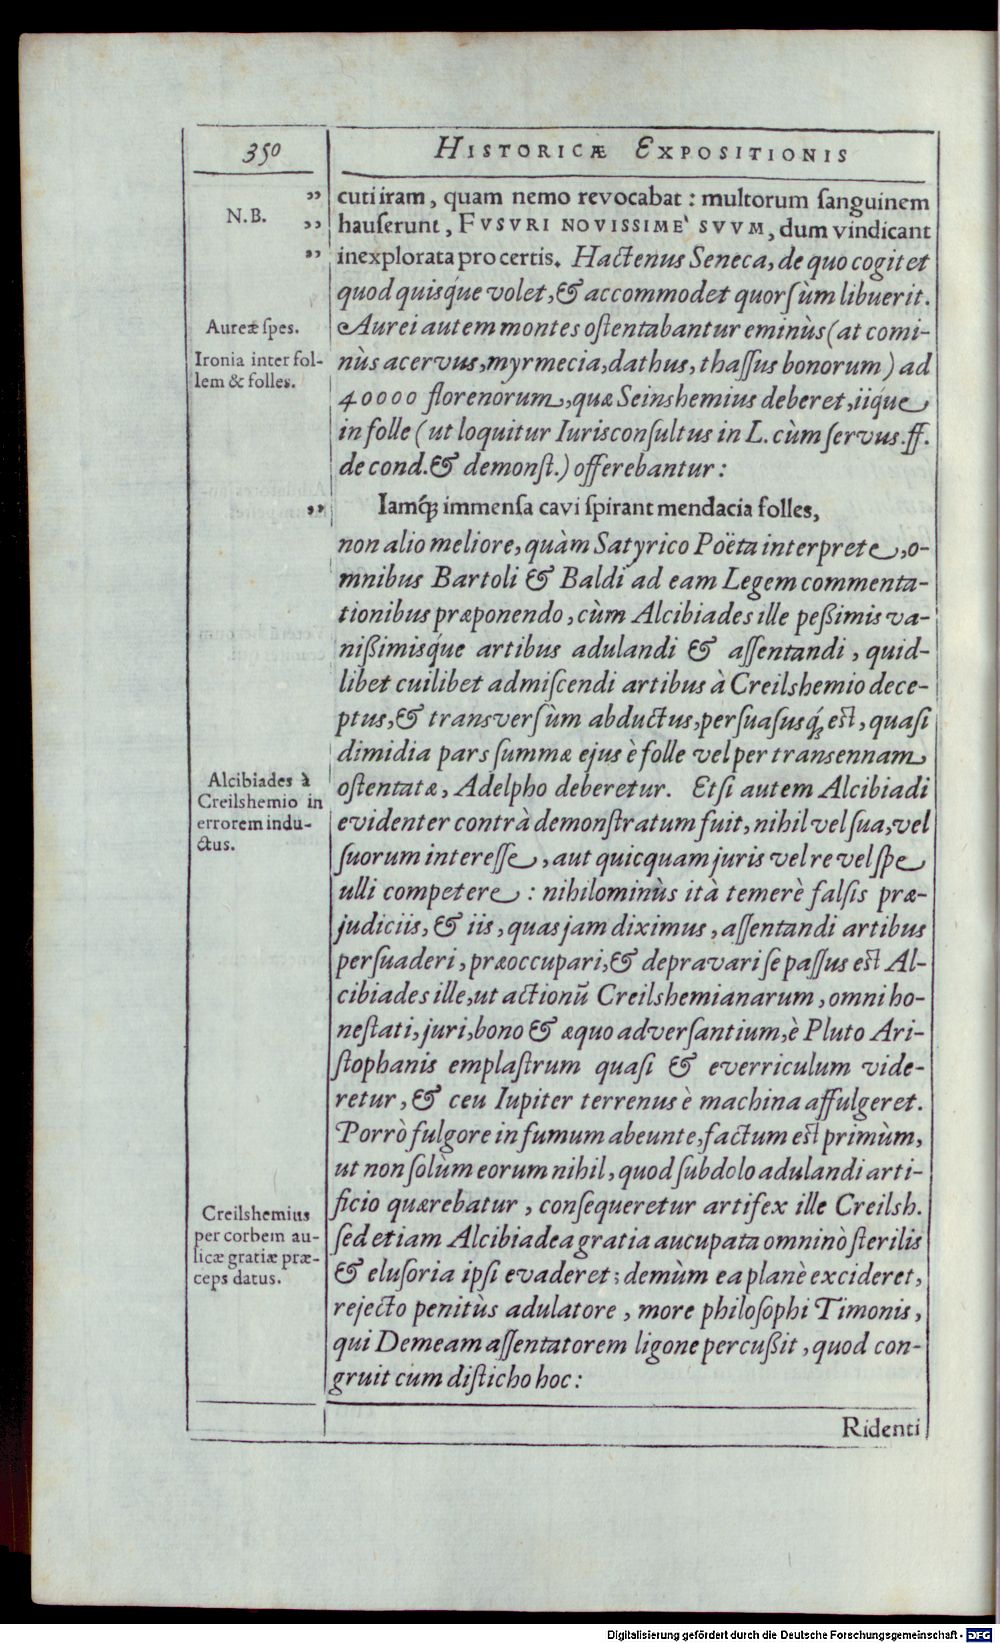 350
HISTORICÆ EXPOSITIONIS
N.B.
Aureæ ſpes.
Ironia inter fol-
lem & folles.
Alcibiades à
Creilshemio in
errorem indu-
ctus.
Creilshemius
per corbem au-
licæ gratiæ præ-
ceps datus.
” cuti iram, quam nemo revocabat: multorum ſanguinem
” hauſerunt, FVSVRI NOVISSIME' SVVM, dum vindicant
” inexplorata pro certis. Hactenus Seneca, de quo cogitet
quod quisq́ue volet, & accommodet quorſùm libuerit.
Aurei autem montes oſtentabantur eminùs (at comi-
nùs acervus, myrmecia, dathus, thaſſus bonorum) ad
40000 florenorum, quæ Seinshemius deberet, iiq́ue
in folle (ut loquitur Iurisconſultus in L. cùm ſervus. ff.
de cond. & demonſt.) offerebantur:
” Iamq́; immenſa cavi ſpirant mendacia folles,
non alio meliore, quàm Satyrico Poëta interprete, o-
mnibus Bartoli & Baldi ad eam Legem commenta-
tionibus præponendo, cùm Alcibiades ille peßimis va-
nißimisq́ue artibus adulandi & aſſentandi, quid-
libet cuilibet admiſcendi artibus à Creilshemio dece-
ptus, & transverſùm abductus, perſuaſusq́; eſt, quaſi
dimidia pars ſummæ ejus è folle vel per transennam
oſtentatæ, Adelpho deberetur. Etſi autem Alcibiadi
evidenter contrà demonſtratum fuit, nihil vel sua, vel
ſuorum intereſſe, aut quicquam juris vel re vel ſpe
ulli competere: nihilominùs ità temerè falſis præ-
judiciis, & iis, quas jam diximus, aſſentandi artibus
perſuaderi, præoccupari, & depravari ſe paſſus eſt Al-
cibiades ille, ut actionũ Creilshemianarum, omni ho-
neſtati, juri, bono & æquo adverſantium, è Pluto Ari-
ſtophanis emplaſtrum quaſi & everriculum vide-
retur, & ceu Iupiter terrenus è machina affulgeret.
Porrò fulgore in fumum abeunte, factum eſt primùm,
ut non ſolùm eorum nihil, quod ſubdolo adulandi arti-
ficio quærebatur, conſequeretur artifex ille Creilsh.
ſed etiam Alcibiadea gratia aucupata omninò ſterilis
& eluſoria ipſi evaderet; demùm ea planè excideret,
rejecto penitùs adulatore, more philoſophi Timonis,
qui Demeam aſſentatorem ligone percußit, quod con-
gruit cum diſticho hoc:
Ridenti
Digitalisierung gefördert durch die Deutsche Forschungsgemeinschaft - DFG